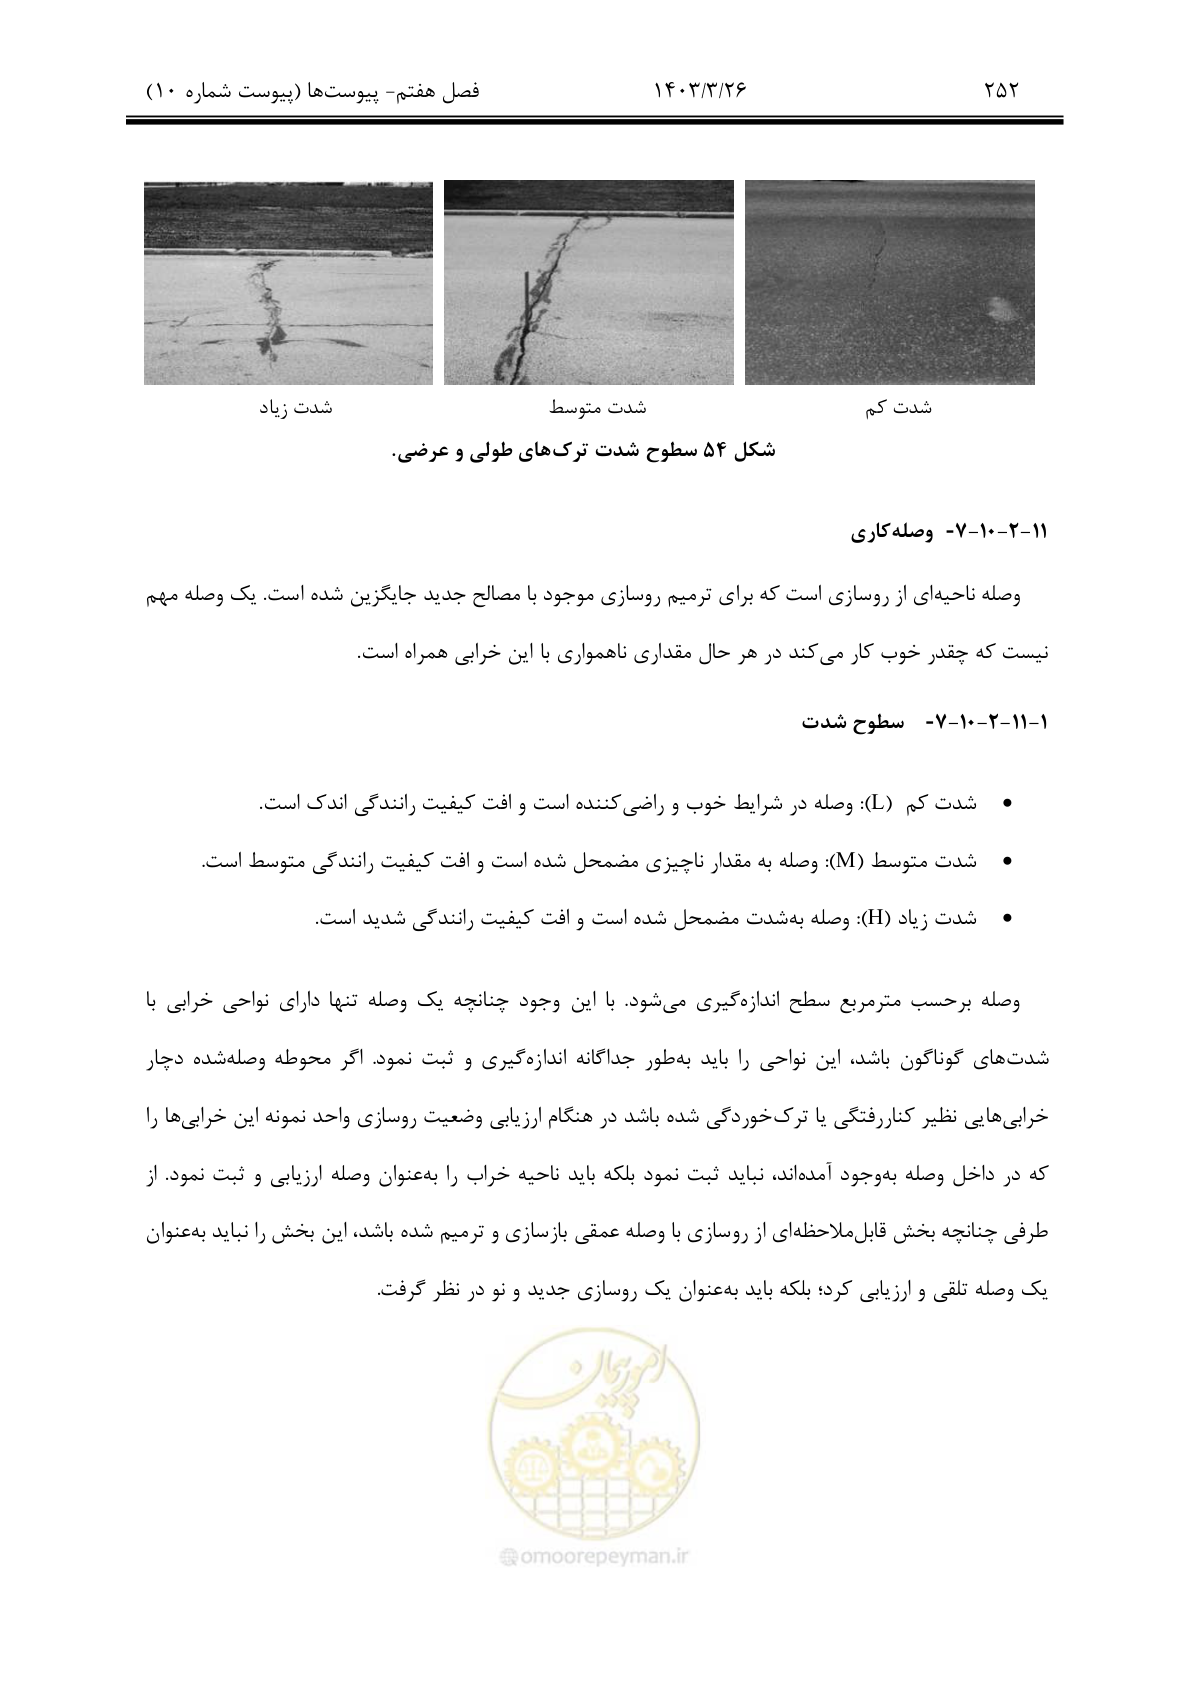 ۲۵۲ ۱۴۰۳/۳/۲۶ فصل هفتم- پیوست‌ها (پیوست شماره ۱۰)
شدت کم شدت متوسط شدت زیاد
شکل ۵۴ سطوح شدت ترک‌های طولی و عرضی.
۷-۱۰-۲-۱۱- وصله‌کاری
وصله ناحیه‌ای از روسازی است که برای ترمیم روسازی موجود با مصالح جدید جایگزین شده است. یک وصله مهم
نیست که چقدر خوب کار می‌کند در هر حال مقداری ناهمواری با این خرابی همراه است.
۷-۱۰-۲-۱۱-۱- سطوح شدت
• شدت کم (L): وصله در شرایط خوب و راضی‌کننده است و افت کیفیت رانندگی اندک است.
• شدت متوسط (M): وصله به مقدار ناچیزی مضمحل شده است و افت کیفیت رانندگی متوسط است.
• شدت زیاد (H): وصله به‌شدت مضمحل شده است و افت کیفیت رانندگی شدید است.
وصله برحسب مترمربع سطح اندازه‌گیری می‌شود. با این وجود چنانچه یک وصله تنها دارای نواحی خرابی با
شدت‌های گوناگون باشد، این نواحی را باید به‌طور جداگانه اندازه‌گیری و ثبت نمود. اگر محوطه وصله‌شده دچار
خرابی‌هایی نظیر کناررفتگی یا ترک‌خوردگی شده باشد در هنگام ارزیابی وضعیت روسازی واحد نمونه این خرابی‌ها را
که در داخل وصله به‌وجود آمده‌اند، نباید ثبت نمود بلکه باید ناحیه خراب را به‌عنوان وصله ارزیابی و ثبت نمود. از
طرفی چنانچه بخش قابل‌ملاحظه‌ای از روسازی با وصله عمقی بازسازی و ترمیم شده باشد، این بخش را نباید به‌عنوان
یک وصله تلقی و ارزیابی کرد؛ بلکه باید به‌عنوان یک روسازی جدید و نو در نظر گرفت.
امور پیمان
@omoorepeyman.ir